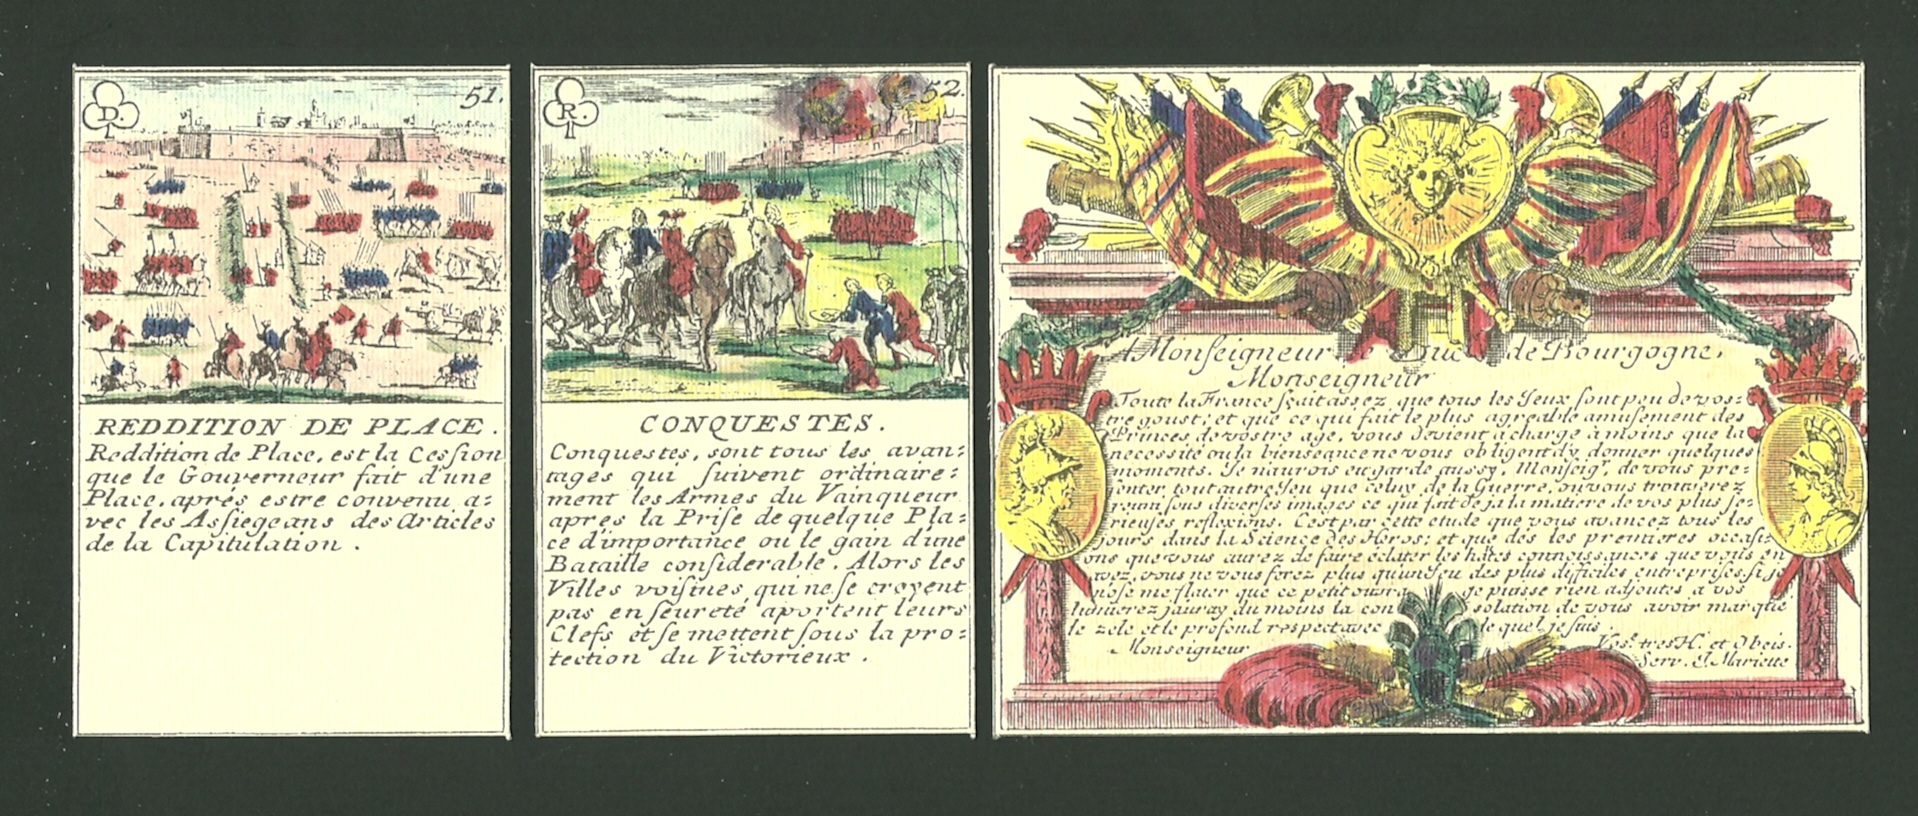 D.
51.
REDDITION DE PLACE.
Reddition de Place, est la Cession
que le Gouverneur fait d'une
Place, aprés estre convenu a=
vec les Assiegeans des Articles
de la Capitulation.
R.
52.
CONQUESTES.
Conquestes, sont tous les avan=
tages qui suivent ordinaire=
ment les Armes du Vainqueur
apres la Prise de quelque Pla=
ce d'importance ou le gain d'une
Bataille considerable. Alors les
Villes voisines, qui ne se croyent
pas en seureté aportent leurs
Clefs et se mettent sous la pro=
tection du Victorieux.
A Monseigneur le Duc de Bourgogne.
Monseigneur
Toute la France sçait assez que tous les Jeux sont peu de vos=
tre goust; et que ce qui fait le plus agreable amusement des
Princes de vostre age, vous devient a charge a moins que la
necessité ou la bienseance ne vous obligent dy donner quelques
moments. Je n'aurois eu garde aussy, Monseigr. de vous pre=
senter tout autre Jeu que celuy de la Guerre, ou vous trouverez
reuni sous diverses images ce qui fait deja la matiere de vos plus se=
rieuses reflexions. C'est par cette etude que vous avancez tous les
jours dans la Science des Heros; et que dés les premieres occasi=
ons que vous aurez de faire éclater les htes connoissances que vous en
avez, vous ne vous ferez plus qu'un Jeu des plus difficiles entreprises. Si je
n'ose me flater que ce petit ouvrage puisse rien adjouter a vos
lumierez j'auray du moins la consolation de vous avoir marqué
le zele et le profond respect avec lequel je suis.
Monseigneur
Vos.e tres H. et Obeis.
Serv. J. Mariette